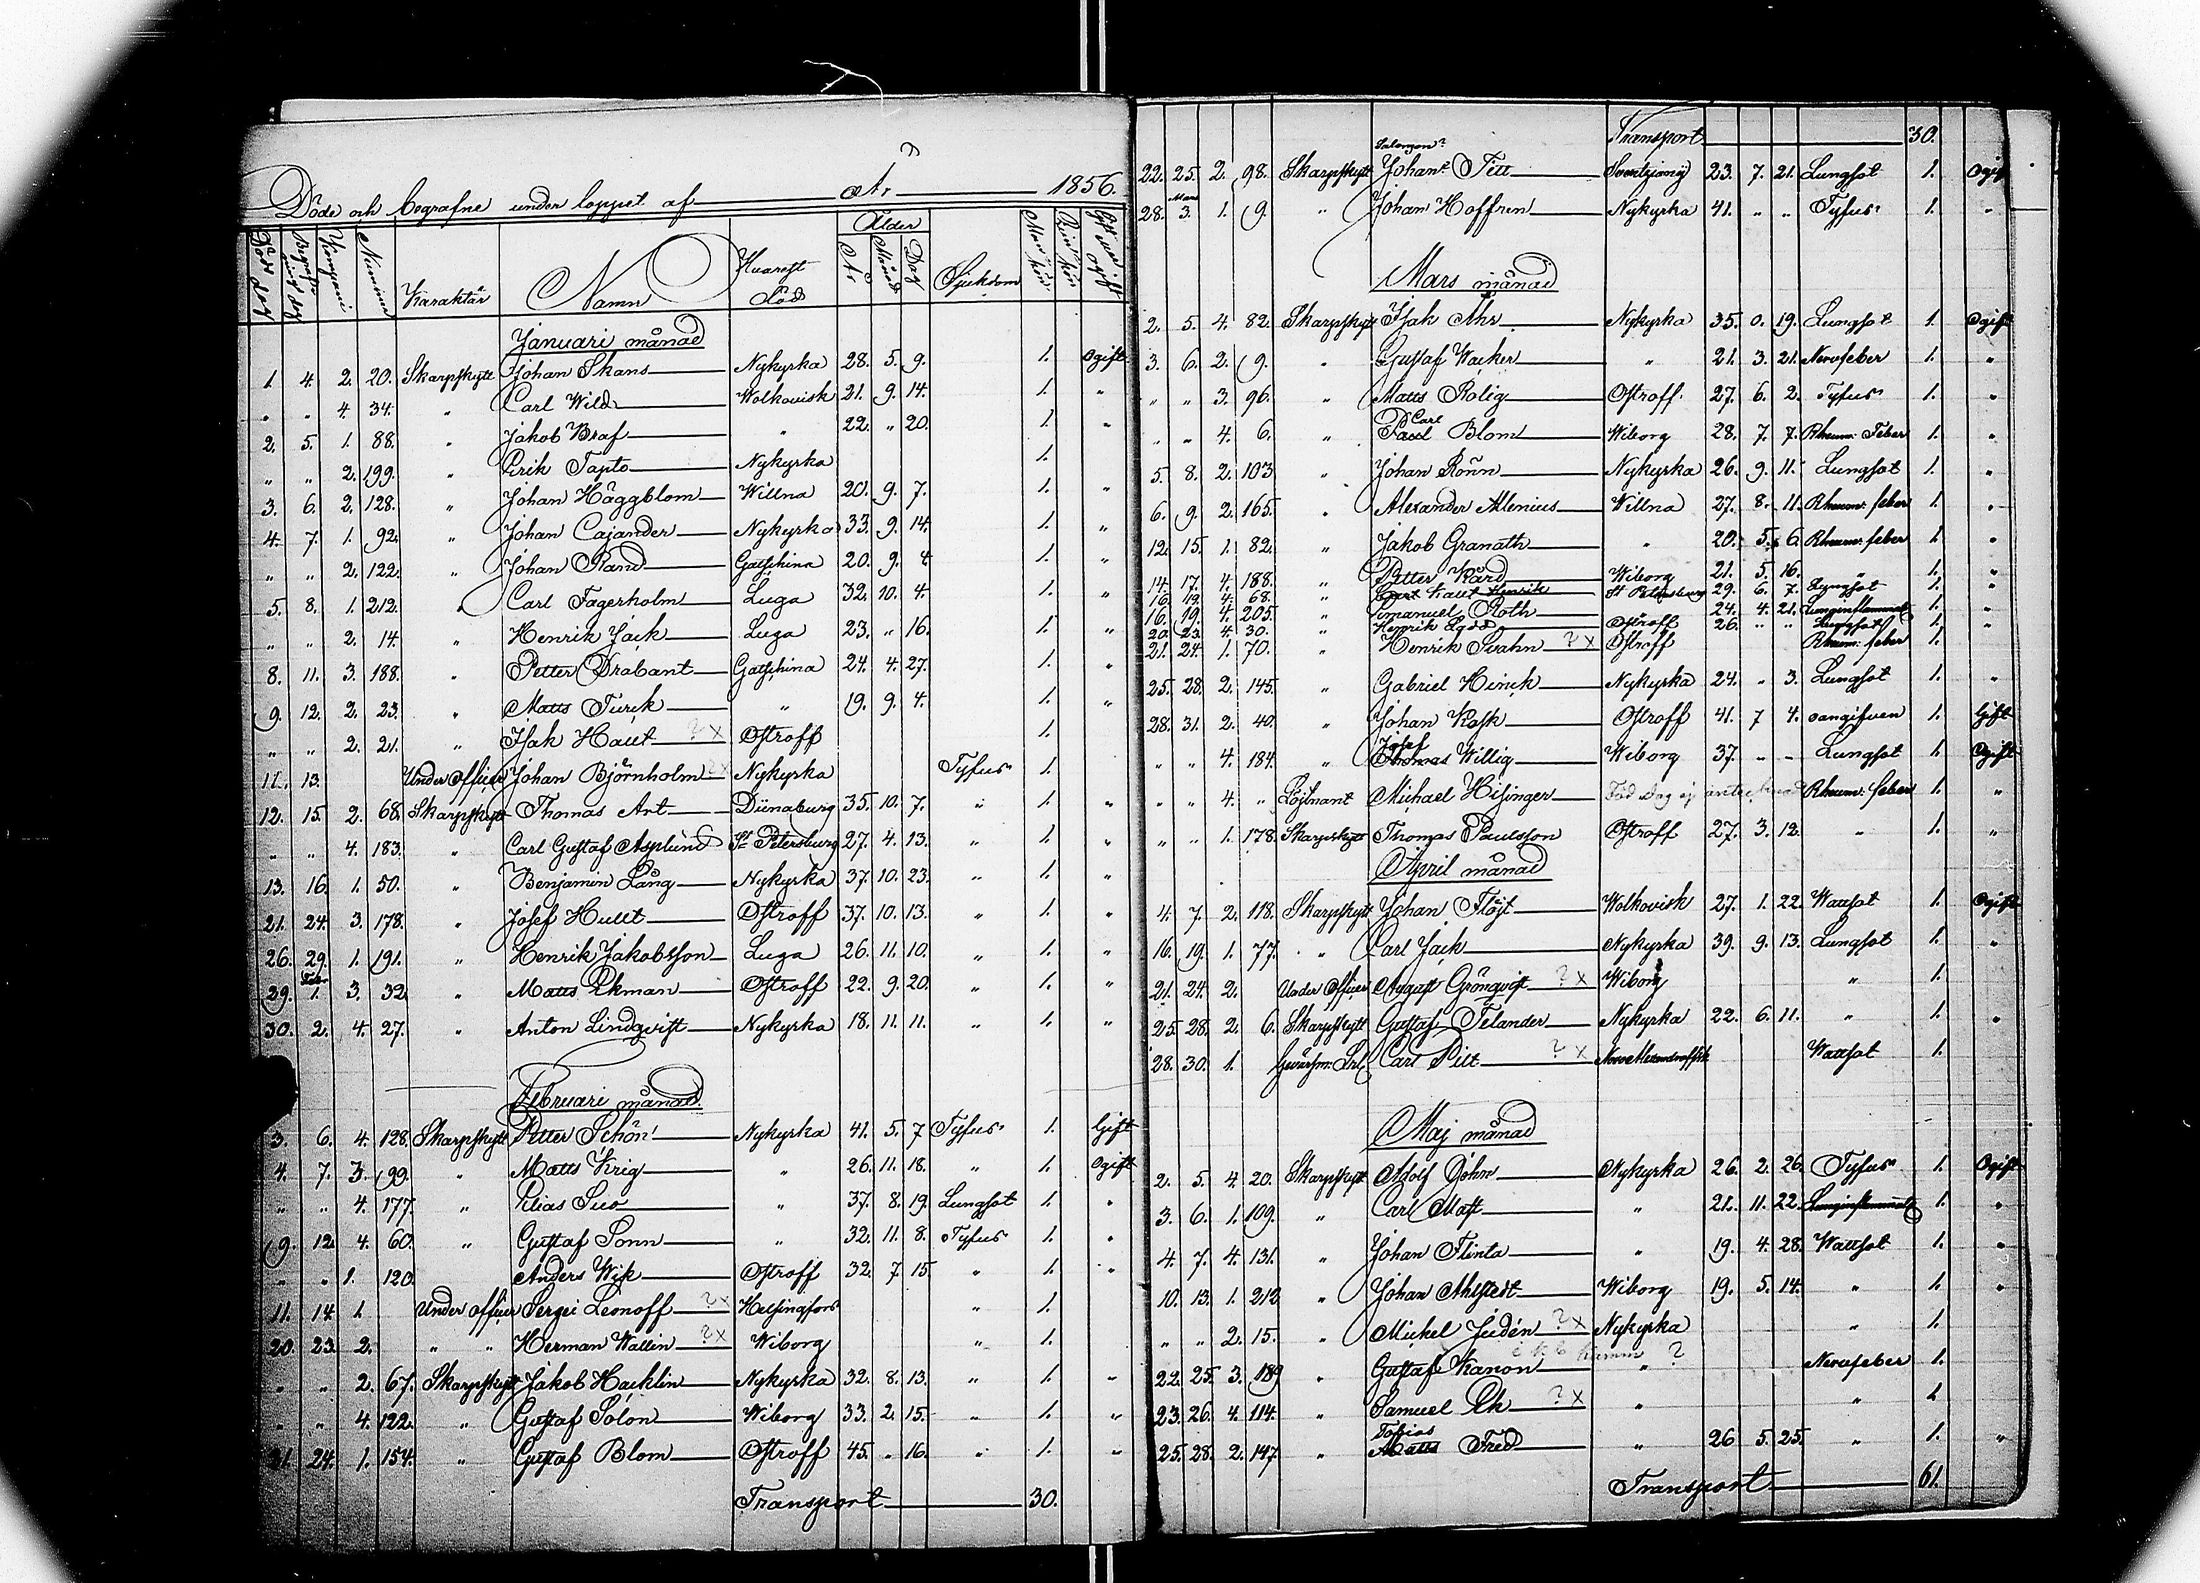 Döde och begrafne under loppet af År 1856.
Död dag Begrafnings dag Kompani Nummer Karaktär Namn Hvarest död Ålder År Månad Dag Sjukdom Mankön Qvinkön Gift eller ogift
Januari månad
1. 4. 2. 20. Skarpskytt Johan Skans Nykyrka 28. 5. 9. 1. Ogift
" " 4. 34. " Carl Wild Wolkovisk 21. 9. 14. 1. "
2. 5. 1. 88. " Jakob Braf " 22. " 20. 1. "
" " 2. 199. " Erik Tapto Nykyrka 1.
3. 6. 2. 128. " Johan Häggblom Willna 20. 9. 7. 1. "
4. 7. 1. 92. " Johan Cajander Nykyrka 33. 9. 14. 1. "
" " 2. 122. " Johan Rand Gatschina 20. 9. 4. 1. "
5. 8. 1. 212. " Carl Fagerholm Luga 32. 10. 4. 1. "
" " 2. 14. " Henrik Jäck Luga 23. " 16. 1. "
8. 11. 3. 188. " Petter Drabant Gatschina 24. 4. 27. 1. "
9. 12. 2. 23. " Matts Turck " 19. 9. 4. 1. "
" " 2. 21. " Isak Haut ? x Ostroff 1.
11. 13. Under officer Johan Björnholm ? x Nykyrka Tyfus 1.
12. 15. 2. 68. Skarpskytt Thomas Art Dünaburg 35. 10. 7. " 1. "
" " 4. 183. " Carl Gustaf Asplund St Petersburg 27. 4. 13. " 1. "
13. 16. 1. 50. " Benjamin Lång Nykyrka 37. 10. 23. " 1. "
21. 24. 3. 178. " Josef Hult Ostroff 37. 10. 13. " 1. "
26. 29. 1. 191. " Henrik Jakobsson Luga 26. 11. 10. " 1. "
29. Febr 1. 3. 32. " Matts Ekman Ostroff 22. 9. 20. " 1. "
30. 2. 4. 27. " Anton Lindqvist Nykyrka 18. 11. 11. " 1. "
Februari månad
3. 6. 4. 128. Skarpskytt Petter Schön Nykyrka 41. 5. 7 Tyfus 1. Gift
4. 7. 3. 99. " Matts Krig " 26. 11. 18. " 1. Ogift
" " 4. 177. " Elias Suo " 37. 8. 19. Lungsot 1. "
9. 12. 4. 60. " Gustaf Sonn " 32. 11. 8. Tyfus 1. "
" " 1. 120. Anders Wik Ostroff 32. 7. 15. " 1. "
11. 14. 1. Under officer Sergei Leonoff ? x Helsingfors " 1.
20. 23. 2. " " Herman Wallin ? x Wiborg " 1.
" " 2. 67. Skarpskytt Jakob Hacklin Nykyrka 32. 8. 13. " 1. "
" " 4. 122. " Gustaf Solon Wiborg 33. 2. 15. " 1. "
21. 24. 1. 154. " Gustaf Blom Ostroff 45. " 16. " 1. "
Transport 30.
Transport 30.
22. 25. 2. 98. Skarpskytt Johan Titt 23. 7. 21. Lungsot 1. Ogift
28. Mars 3. 1. 9. " Johan Hoffren Nykyrka 41. " " Tyfus 1. "
Mars månad
2. 5. 4. 82. Skarpskytt Isak Ahr Nykyrka 35. 0. 19. Lungsot 1. Ogift
3. 6. 2. 9. " Gustaf Wacker " 21. 3. 21. Nervfeber 1. "
" " 3. 96. " Matts Rolig Ostroff 27. 6. 2. Tyfus 1. "
" " 4. 6. " Carl Paul Blom Wiborg 28. 7. 7. Rheum: Feber 1. "
5. 8. 2. 103 " Johan Rönn Nykyrka 26. 9. 11. Lungsot 1. "
6. 9. 2. 165. " Alexander Alenius Willna 27. 8. 11. Rheum: feber 1. "
12. 15. 1. 82. " Jakob Granath " 20. 5. 6. Rheum: feber 1. "
14. 17. 4. 188. " Petter Kård Wiborg 21. 5. 16. " 1. "
16. 19. 4. 68. " Henrik St Petersburg 29. 6. 7. Lungsot 1. "
16. 19. 4. 205. " Emanuel Roth " 24. 4. 21. Lunginflammat 1. "
20. 23. 4. 30. " Henrik Ostroff 26. " " Lungsot 1. "
21. 24. 1. 70. " Henrik Svahn ? x Ostroff Rheum: feber 1.
25. 28. 2. 145. " Gabriel Hinck Nykyrka 24. " 3. Lungsot 1. "
28. 31. 2. 40. " Johan Kask Ostroff 41. 7 4. oangifven 1. Gift
" " 4. 184. " Josef Thomas Willig Wiborg 37. " " Lungsot 1. Ogift
" " 4. " Löjtnant Michael Hisinger Född dag ej antecknad Rheum: feber 1. "
" " 1. 178. Skarpskytt Thomas Paulsson Ostroff 27. 3. 12. " 1. "
April månad
4. 7. 2. 118. Skarpskytt Johan Flöjt Wolkovisk 27. 1. 22. Wattsot 1. Ogift
16. 19. 1. 77. " Carl Jäck Nykyrka 39. 9. 13. Lungsot 1. "
21. 24. 2. Under Officer August Grönqvist ? x Wiborg " 1.
25. 28. 2. 6. Skarpskytt Gustaf Telander Nykyrka 22. 6. 11. " 1. "
28. 30. 1. Carl Pitt ? x Wattsot 1.
Maj månad
2. 5. 4. 20. Skarpskytt Adolf Öhn Nykyrka 26. 2. 26. Tyfus 1. Ogift
3. 6. 1. 109. " Carl Mast " 21. 11. 22. Lunginflammat 1. "
4. 7. 4. 131. " Johan Flinta " 19. 4. 28. Wattsot 1. "
10. 13. 1. 212 " Johan Ahlstedt Wiborg 19. 5. 14. " 1. "
" " 2. 15. " Mickel Judén ? x Nykyrka " 1.
22. 25. 3. 189 " Gustaf Kanon " ? Nervfeber 1.
23. 26. 4. 114. " Samuel Ek ? x " " 1
25. 28. 2. 147. " Tobias Matts Frid " 26 5. 25. " 1. "
Transport 61.